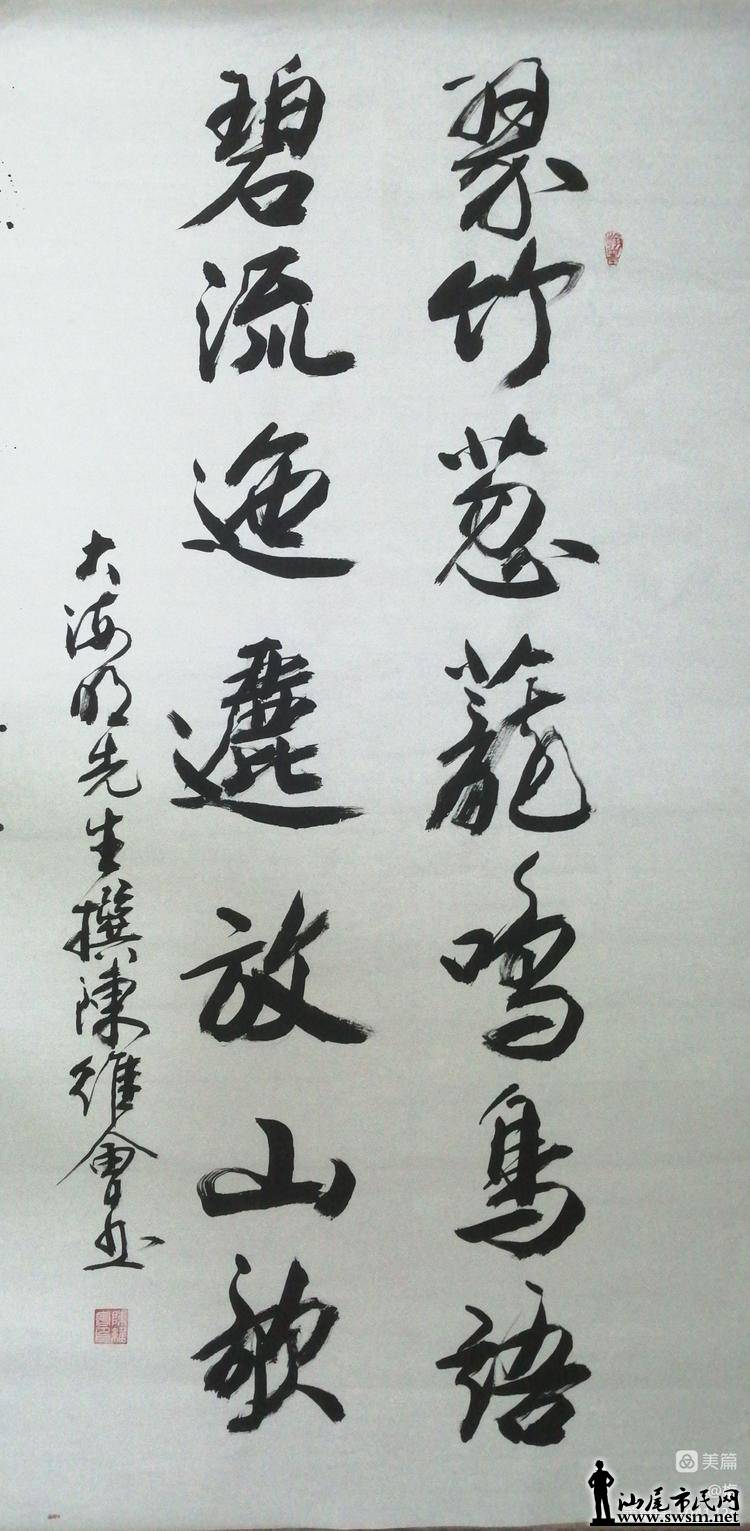 翠竹葱蘢鳴鳥語
碧流迤邐放山歌
大海明先生撰陳維會书
美篇
汕尾市民网
www.swsm.net